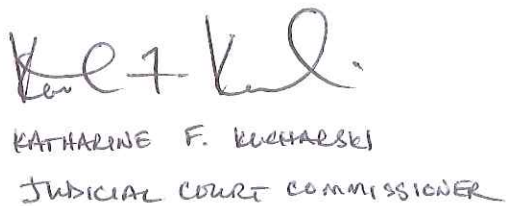 KATHARINE F. KUCHARSKI
JUDICIAL COURT COMMISSIONER